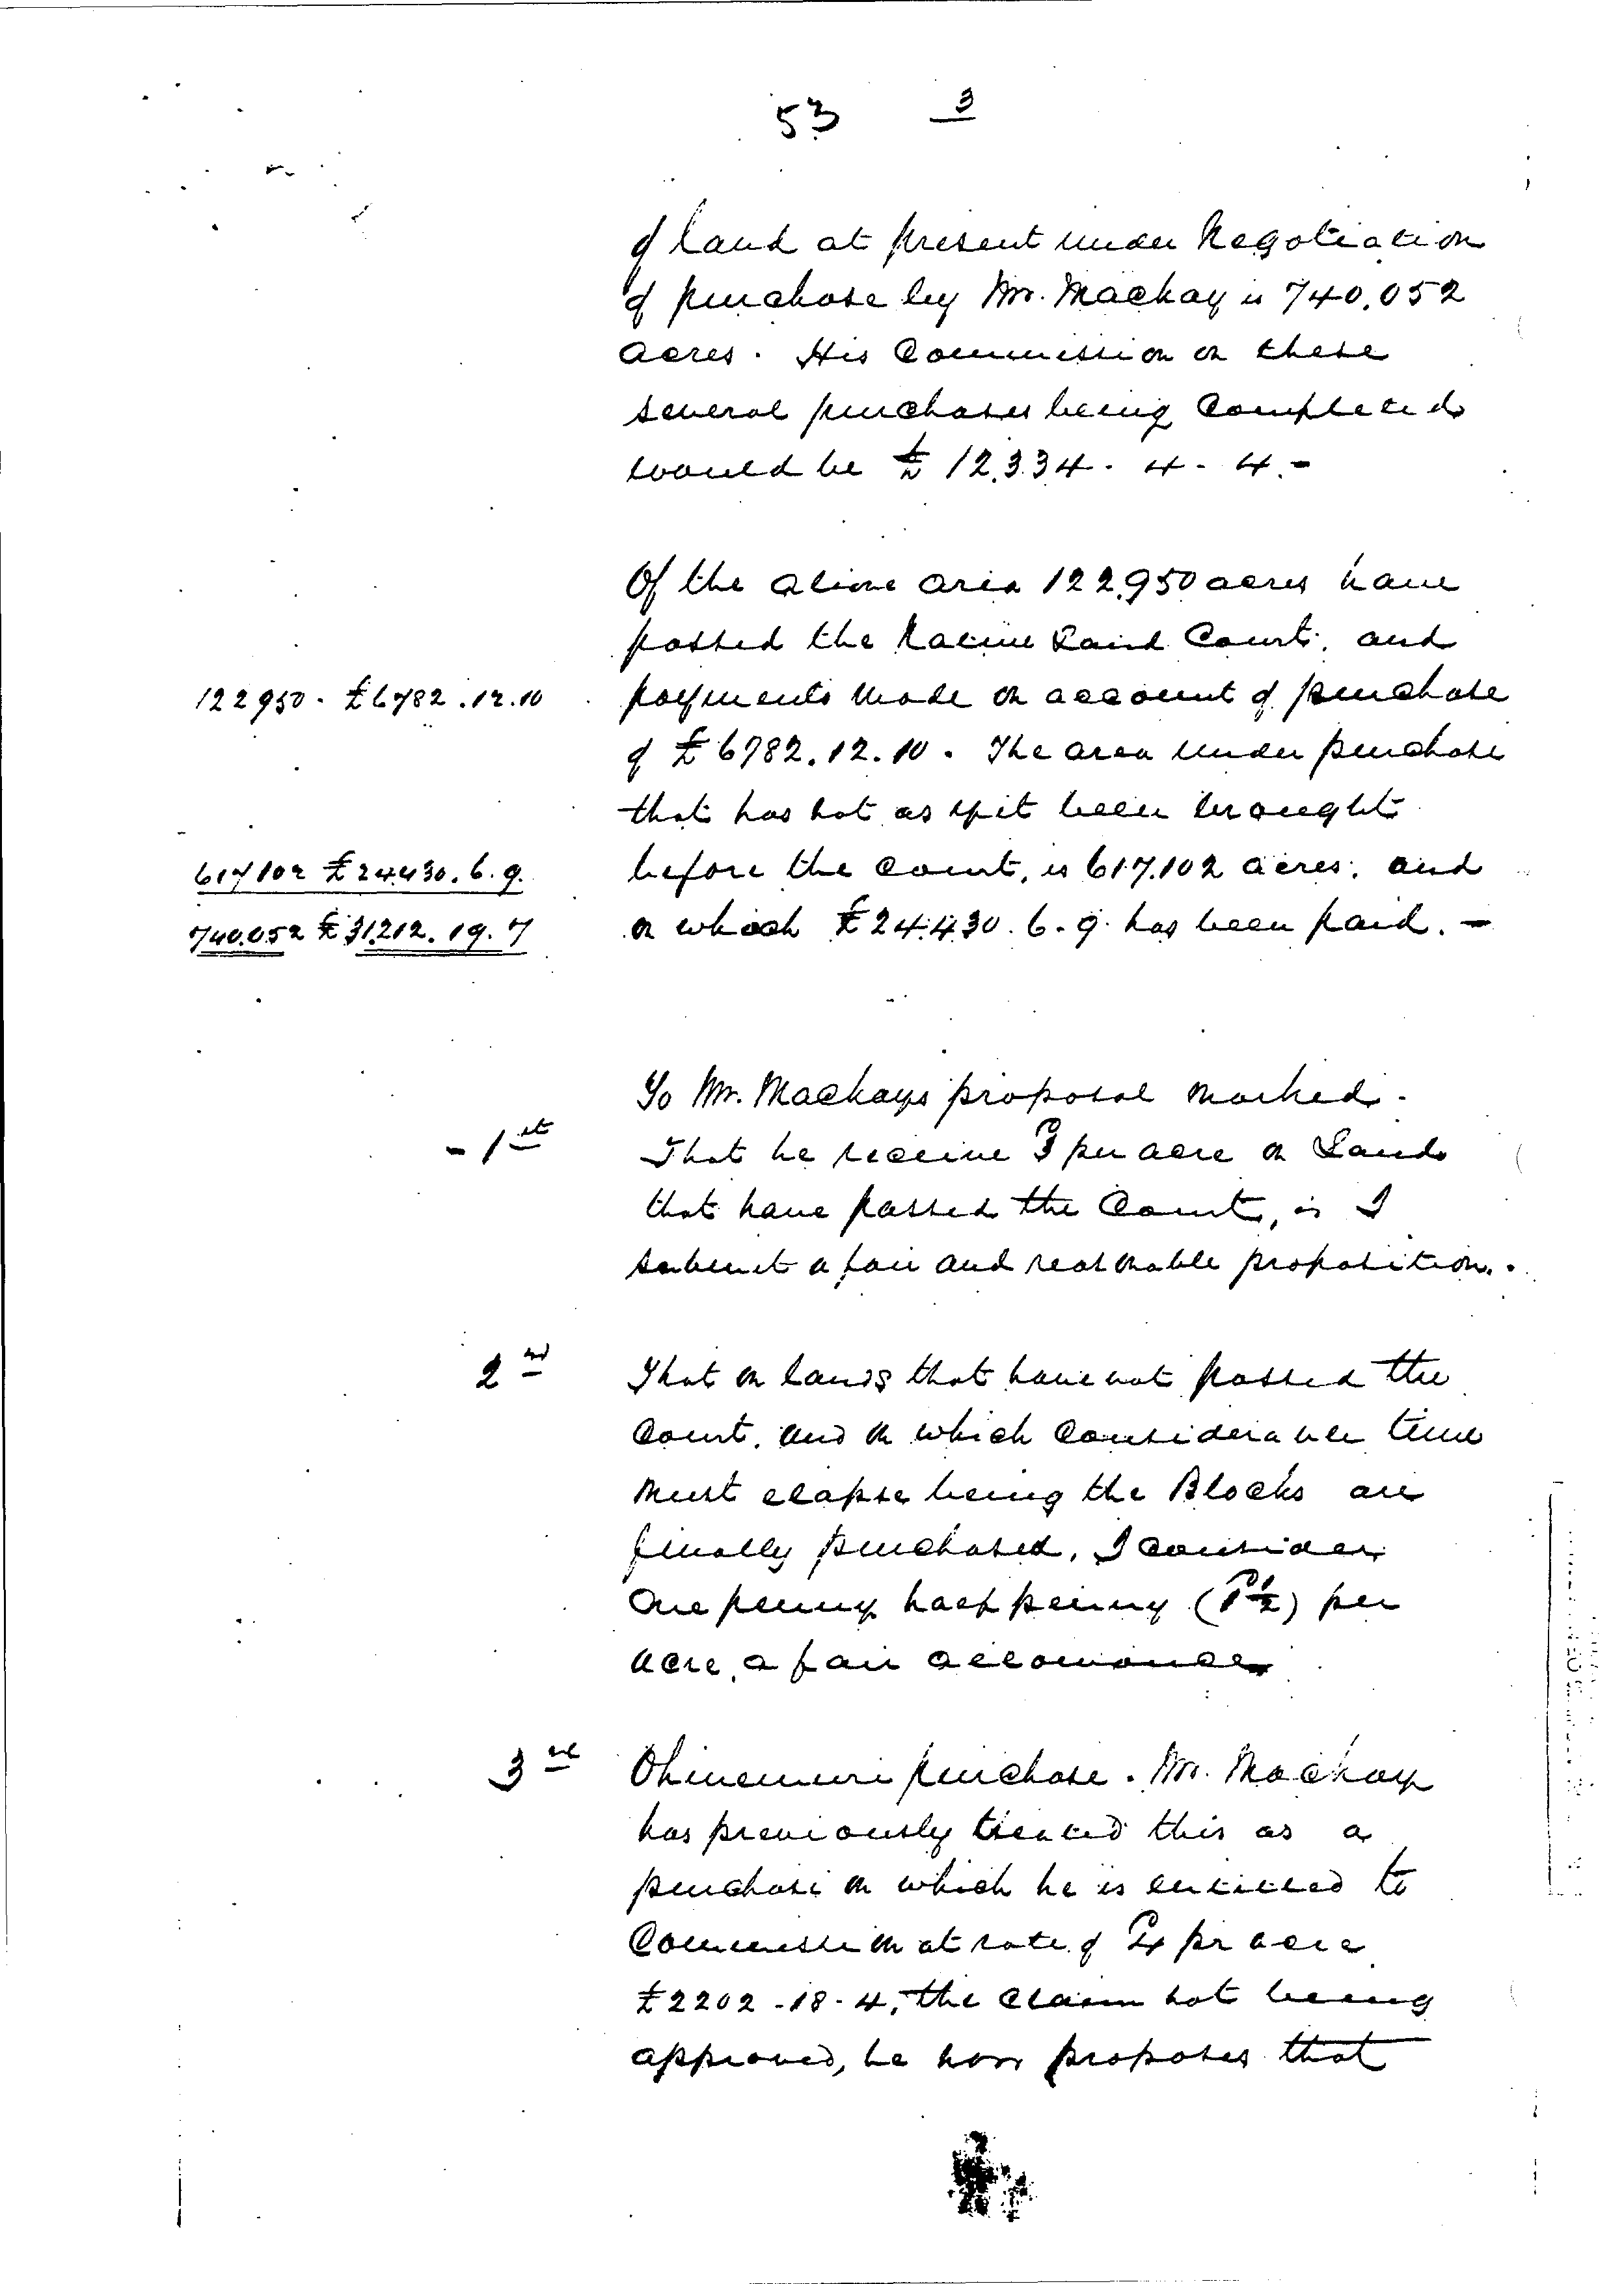 53 3
of land at present under Negotiation
of purchase by Mr. Mackay is 740,052
acres. His Commission on these
several purchases being Completed
would be £12,334. 4. 4. -
Of the above area 122,950 acres have
passed the Native Land Court, and
122950. £6782.12.10
payments made on account of purchase
of £6782.12.10. The area under purchase
that has not as yet been brought
617102 £24430.6.9.
before the Court, is 617,102 acres, and
740.052 £31,212.19.7
on which £24,430.6.9. has been paid. -
To Mr. Mackays proposal marked.
- 1st
That he receive 3d per acre on Lands
that have passed the Court, is I
submit a fair and reasonable proposition.
2nd
That on lands that have not passed the
Court, and on which Considerable time
must elapse being the Blocks are
finally purchased, I consider
One penny half penny (1½d) per
acre, a fair allowance
3rd
Ohinemuri purchase. Mr. Mackay
has previously treated this as a
purchase on which he is entitled to
Commission at rate of 4d pr acre
£2202-18-4, the Claim not being
approved, he now proposes that